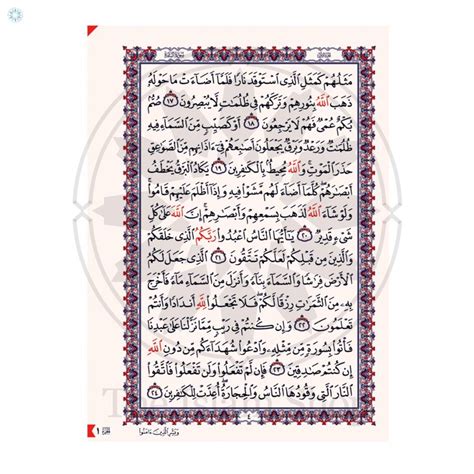 مَثَلُهُمْ كَمَثَلِ ٱلَّذِى ٱسْتَوْقَدَ نَارًا فَلَمَّآ أَضَآءَتْ مَا حَوْلَهُۥ
ذَهَبَ ٱللَّهُ بِنُورِهِمْ وَتَرَكَهُمْ فِى ظُلُمَٰتٍ لَّا يُبْصِرُونَ ١٧ صُمٌّۢ
بُكْمٌ عُمْىٌ فَهُمْ لَا يَرْجِعُونَ ١٨ أَوْ كَصَيِّبٍ مِّنَ ٱلسَّمَآءِ فِيهِ
ظُلُمَٰتٌ وَرَعْدٌ وَبَرْقٌ يَجْعَلُونَ أَصَٰبِعَهُمْ فِىٓ ءَاذَانِهِم مِّنَ ٱلصَّوَٰعِقِ
حَذَرَ ٱلْمَوْتِ ۚ وَٱللَّهُ مُحِيطٌۢ بِٱلْكَٰفِرِينَ ١٩ يَكَادُ ٱلْبَرْقُ يَخْطَفُ
أَبْصَٰرَهُمْ ۖ كُلَّمَآ أَضَآءَ لَهُم مَّشَوْا۟ فِيهِ وَإِذَآ أَظْلَمَ عَلَيْهِمْ قَامُوا۟ ۚ
وَلَوْ شَآءَ ٱللَّهُ لَذَهَبَ بِسَمْعِهِمْ وَأَبْصَٰرِهِمْ ۚ إِنَّ ٱللَّهَ عَلَىٰ كُلِّ
شَىْءٍ قَدِيرٌ ٢٠ يَٰٓأَيُّهَا ٱلنَّاسُ ٱعْبُدُوا۟ رَبَّكُمُ ٱلَّذِى خَلَقَكُمْ
وَٱلَّذِينَ مِن قَبْلِكُمْ لَعَلَّكُمْ تَتَّقُونَ ٢١ ٱلَّذِى جَعَلَ لَكُمُ
ٱلْأَرْضَ فِرَٰشًا وَٱلسَّمَآءَ بِنَآءً وَأَنزَلَ مِنَ ٱلسَّمَآءِ مَآءً فَأَخْرَجَ
بِهِۦ مِنَ ٱلثَّمَرَٰتِ رِزْقًا لَّكُمْ ۖ فَلَا تَجْعَلُوا۟ لِلَّهِ أَندَادًا وَأَنتُمْ
تَعْلَمُونَ ٢٢ وَإِن كُنتُمْ فِى رَيْبٍ مِّمَّا نَزَّلْنَا عَلَىٰ عَبْدِنَا
فَأْتُوا۟ بِسُورَةٍ مِّن مِّثْلِهِۦ وَٱدْعُوا۟ شُهَدَآءَكُم مِّن دُونِ ٱللَّهِ
إِن كُنتُمْ صَٰدِقِينَ ٢٣ فَإِن لَّمْ تَفْعَلُوا۟ وَلَن تَفْعَلُوا۟ فَٱتَّقُوا۟
ٱلنَّارَ ٱلَّتِى وَقُودُهَا ٱلنَّاسُ وَٱلْحِجَارَةُ ۖ أُعِدَّتْ لِلْكَٰفِرِينَ ٢٤
٤
وبشر الذين ءامنوا
الجزء ١